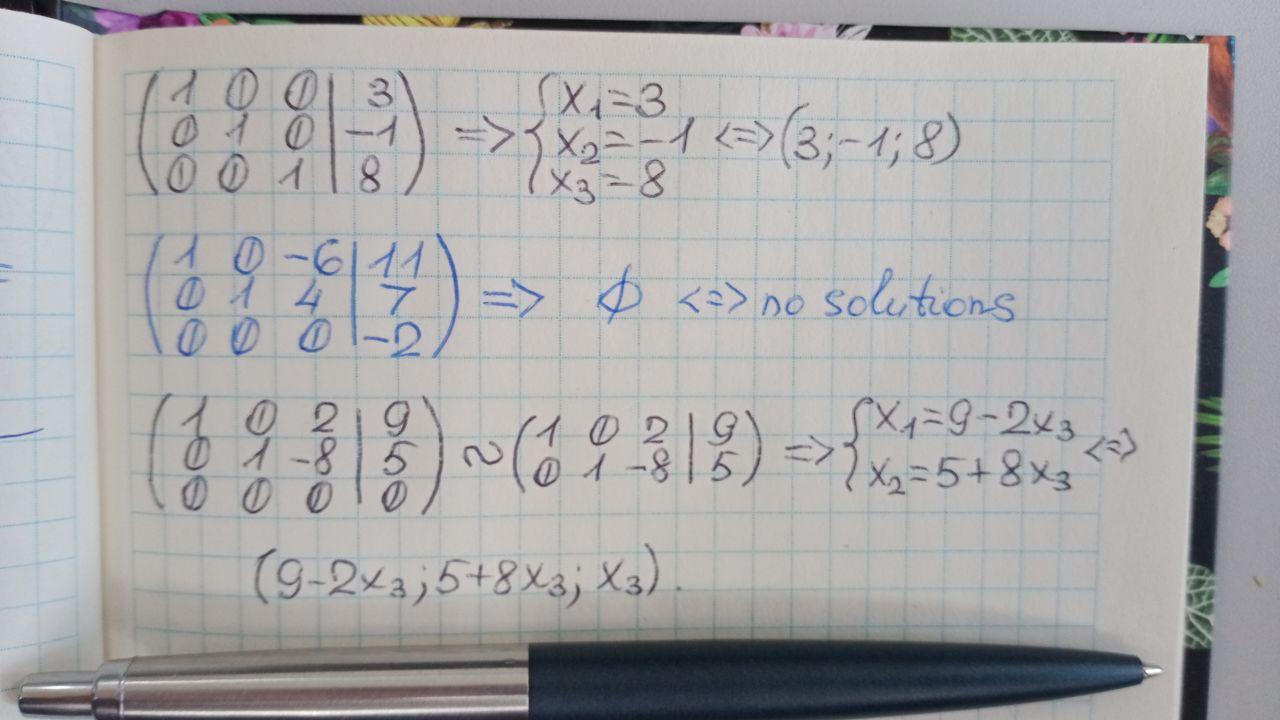 (1 0 0 | 3
0 1 0 | -1
0 0 1 | 8) => {x₁=3
x₂=-1
x₃=8 <=> (3;-1;8)
(1 0 -6 | 11
0 1 4 | 7
0 0 0 | -2) => ∅ <=> no solutions
(1 0 2 | 9
0 1 -8 | 5
0 0 0 | 0) ~ (1 0 2 | 9
0 1 -8 | 5) => {x₁=9-2x₃
x₂=5+8x₃ <=>
(9-2x₃;5+8x₃;x₃).